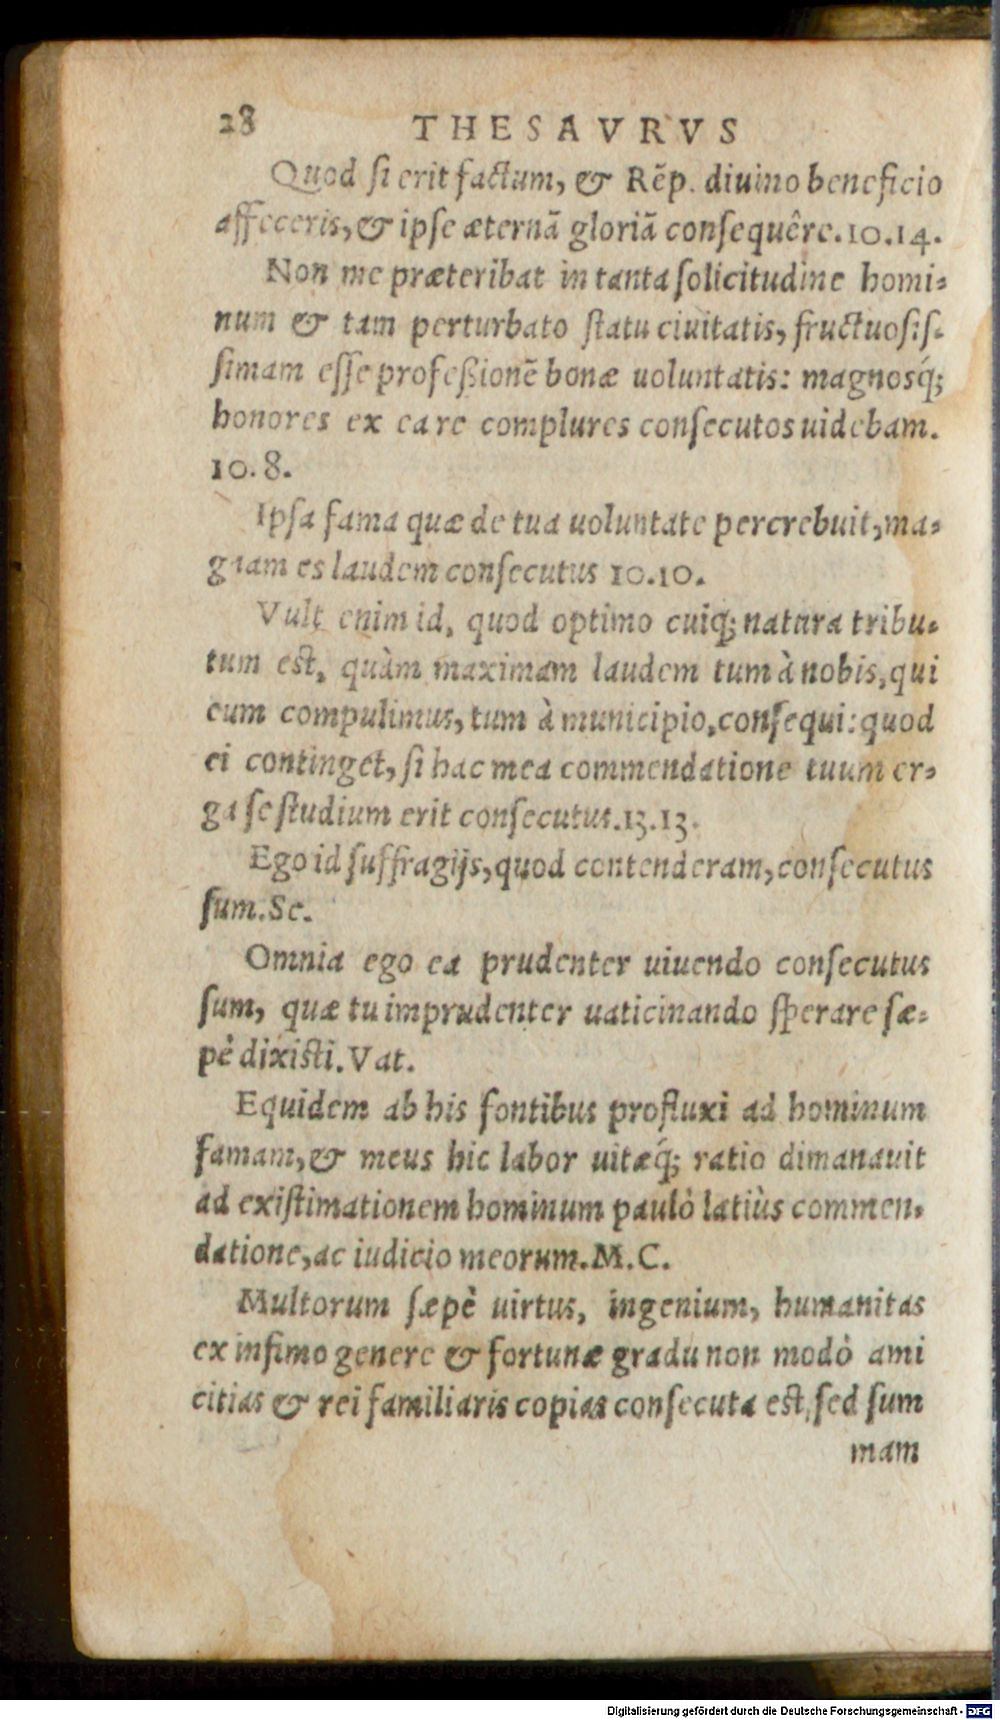 28 THESAVRVS
Quod si erit factum, & Rēp. diuino beneficio
affeceris, & ipse æternā gloriā consequêre. 10.14.
Non me præteribat in tanta solicitudine homi-
num & tam perturbato statu ciuitatis, fructuosis-
simam esse professionē bonæ uoluntatis: magnosq́;
honores ex ea re complures consecutos uidebam.
10.8.
Ipsa fama quæ de tua uoluntate percrebuit, ma-
gnam es laudem consecutus 10.10.
Vult enim id, quod optimo cuiq; natura tribu-
tum est, quàm maximam laudem tum à nobis, qui
eum compulimus, tum à municipio, consequi: quod
ei continget, si hac mea commendatione tuum er-
ga se studium erit consecutus. 13.13.
Ego id suffragijs, quod contenderam, consecutus
sum. Se.
Omnia ego ea prudenter uiuendo consecutus
sum, quæ tu imprudenter uaticinando sperare sæ-
pè dixisti. Vat.
Equidem ab his fontibus profluxi ad hominum
famam, & meus hic labor uitæq́; ratio dimanauit
ad existimationem hominum paulò latiùs commen-
datione, ac iudicio meorum. M.C.
Multorum sæpè uirtus, ingenium, humanitas
ex infimo genere & fortunæ gradu non modò ami
citias & rei familiaris copias consecuta est, sed sum
mam
Digitalisierung gefördert durch die Deutsche Forschungsgemeinschaft - DFG